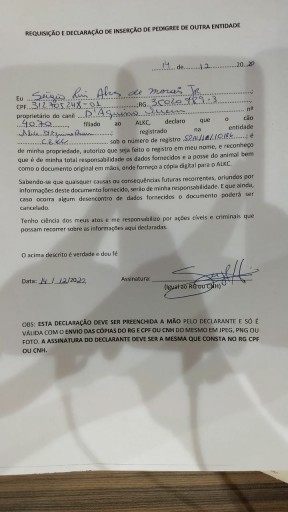 REQUISIÇÃO E DECLARAÇÃO DE INSERÇÃO DE PEDIGREE DE OUTRA ENTIDADE
14 de 12 20.20
Eu Sérgio Luiz Alves de Morais Jr.
CPF RG
proprietário de canil D'Aquino nº
4070 filiado ao ALKC, declaro que o cão
registrado na entidade
sob o número de registro e
de minha propriedade, autorizo que seja feito o registro em meu nome, e reconheço
que é de minha total responsabilidade os dados fornecidos e a posse do animal bem
como o documento original em mãos, onde forneço a cópia digital para o ALKC.
Sabendo-se que quaisquer causas ou consequências futuras recorrentes, oriundos por
informações deste documento fornecido, serão de minha responsabilidade. E que ainda,
caso ocorra algum desencontro de dados fornecidos o documento poderá ser
cancelado.
Tenho ciência dos meus atos e me responsabilizo por ações cíveis e criminais que
possam recorrer sobre as informações aqui declaradas.
O acima descrito é verdade e dou fé
Data: 14 / 12/2020 Assinatura:
(Igual ao RG ou CNH)
OBS: ESTA DECLARAÇÃO DEVE SER PREENCHIDA A MÃO PELO DECLARANTE E SÓ É
VÁLIDA COM O ENVIO DAS CÓPIAS DO RG E CPF OU CNH DO MESMO EM JPEG, PNG OU
FOTO. A ASSINATURA DO DECLARANTE DEVE SER A MESMA QUE CONSTA NO RG CPF
OU CNH.